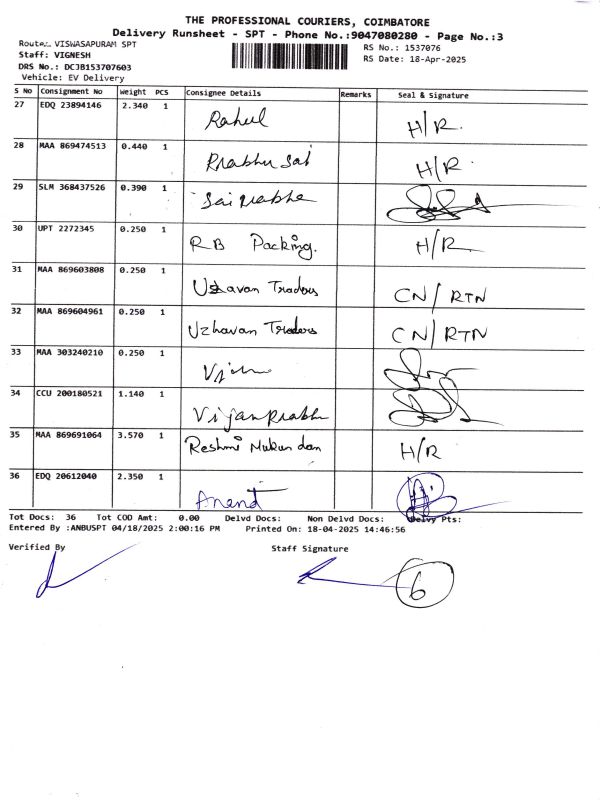 THE PROFESSIONAL COURIERS, COIMBATORE
Delivery Runsheet - SPT - Phone No.:9047080280 - Page No.:3
Route: VISWASAPURAM SPT
Staff: VIGNESH
DRS No.: DCJB153707603
Vehicle: EV Delivery
RS No.: 1537076
RS Date: 18-Apr-2025
S No Consignment No Weight PCS Consignee Details Remarks Seal & Signature
27 EDQ 23894146 2.340 1 Rahul H/R.
28 MAA 869474513 0.440 1 Prabhu sai H/R.
29 SLM 368437526 0.390 1 Sai
30 UPT 2272345 0.250 1 RB Packing. H/R
31 MAA 869603808 0.250 1 Uzhavan Traders CN/RTN
32 MAA 869604961 0.250 1 Uzhavan Traders CN/RTN
33 MAA 303240210 0.250 1
34 CCU 200180521 1.140 1 Vijanprabhu
35 MAA 869691064 3.570 1 Reshmi Mukundan H/R
36 EDQ 20612040 2.350 1 Anand
Tot Docs: 36 Tot COD Amt: 0.00 Delvd Docs: Non Delvd Docs: Delvy Pts:
Entered By :ANBUSPT 04/18/2025 2:00:16 PM Printed On: 18-04-2025 14:46:56
Verified By Staff Signature
6